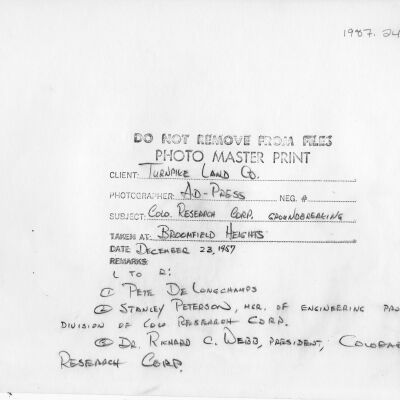 1987.24
DO NOT REMOVE FROM FILES
PHOTO MASTER PRINT
CLIENT: TURNPIKE LAND CO.
PHOTOGRAPHER: AD-PRESS NEG. #
SUBJECT: COLO. RESEARCH CORP. GROUNDBREAKING
TAKEN AT: BROOMFIELD HEIGHTS
DATE DECEMBER 23, 1957
REMARKS:
L TO R:
① PETE DELONGCHAMPS
② STANLEY PETERSON, MGR. OF ENGINEERING
DIVISION OF COLO RESEARCH CORP.
③ DR. RICHARD C. WEBB, PRESIDENT, COLORAD
RESEARCH CORP.